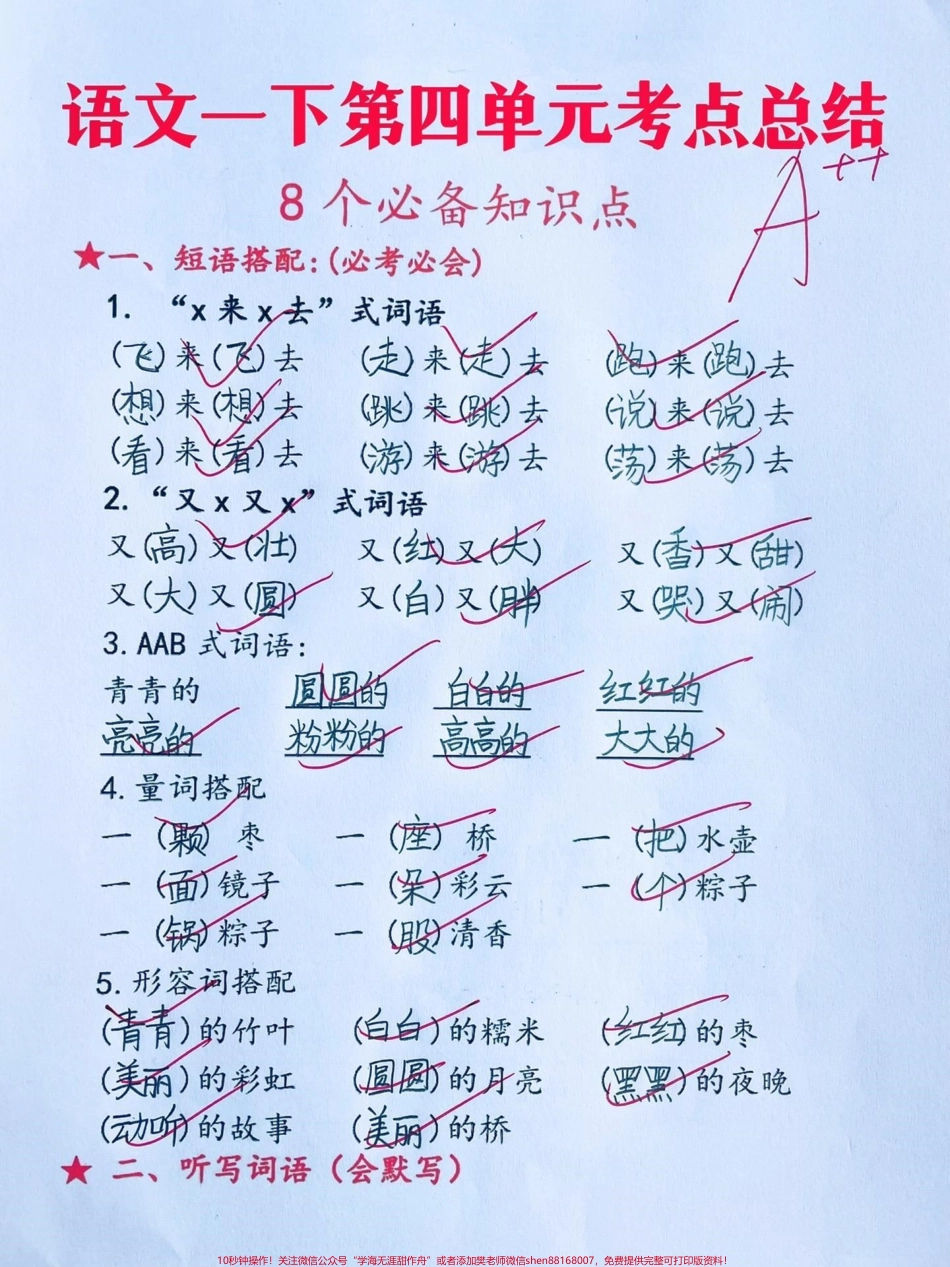 语文一下第四单元考点总结
A++
8个必备知识点
★一、短语搭配:(必考必会)
1. “x来x去”式词语
(飞)来(飞)去 (走)来(走)去 (跑)来(跑)去
(想)来(想)去 (跳)来(跳)去 (说)来(说)去
(看)来(看)去 (游)来(游)去 (荡)来(荡)去
2. “又x又x”式词语
又(高)又(壮) 又(红)又(大) 又(香)又(甜)
又(大)又(圆) 又(白)又(胖) 又(哭)又(闹)
3. AAB式词语:
青青的 圆圆的 白白的 红红的
亮亮的 粉粉的 高高的 大大的
4. 量词搭配
一(颗)枣 一(座)桥 一(把)水壶
一(面)镜子 一(朵)彩云 一(个)粽子
一(锅)粽子 一(股)清香
5. 形容词搭配
(青青)的竹叶 (白白)的糯米 (红红)的枣
(美丽)的彩虹 (圆圆)的月亮 (黑黑)的夜晚
(动听)的故事 (美丽)的桥
★ 二、听写词语(会默写)
10秒钟操作!关注微信公众号“学海无涯甜作舟”或者添加樊老师微信shen88168007,免费提供完整可打印版资料!